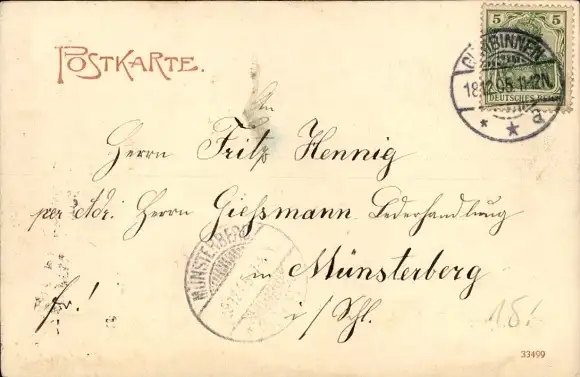 POSTKARTE.
5 5
DEUTSCHES REICH
GUMBINNEN
18.12.05. 11-12V.
* * a
An
Herrn Fritz Hennig
per Adr. Herrn Giessmann Lederhandlung
MÜNSTERBERG
in Münsterberg
Fr!
i/Schl.
15.-
33499